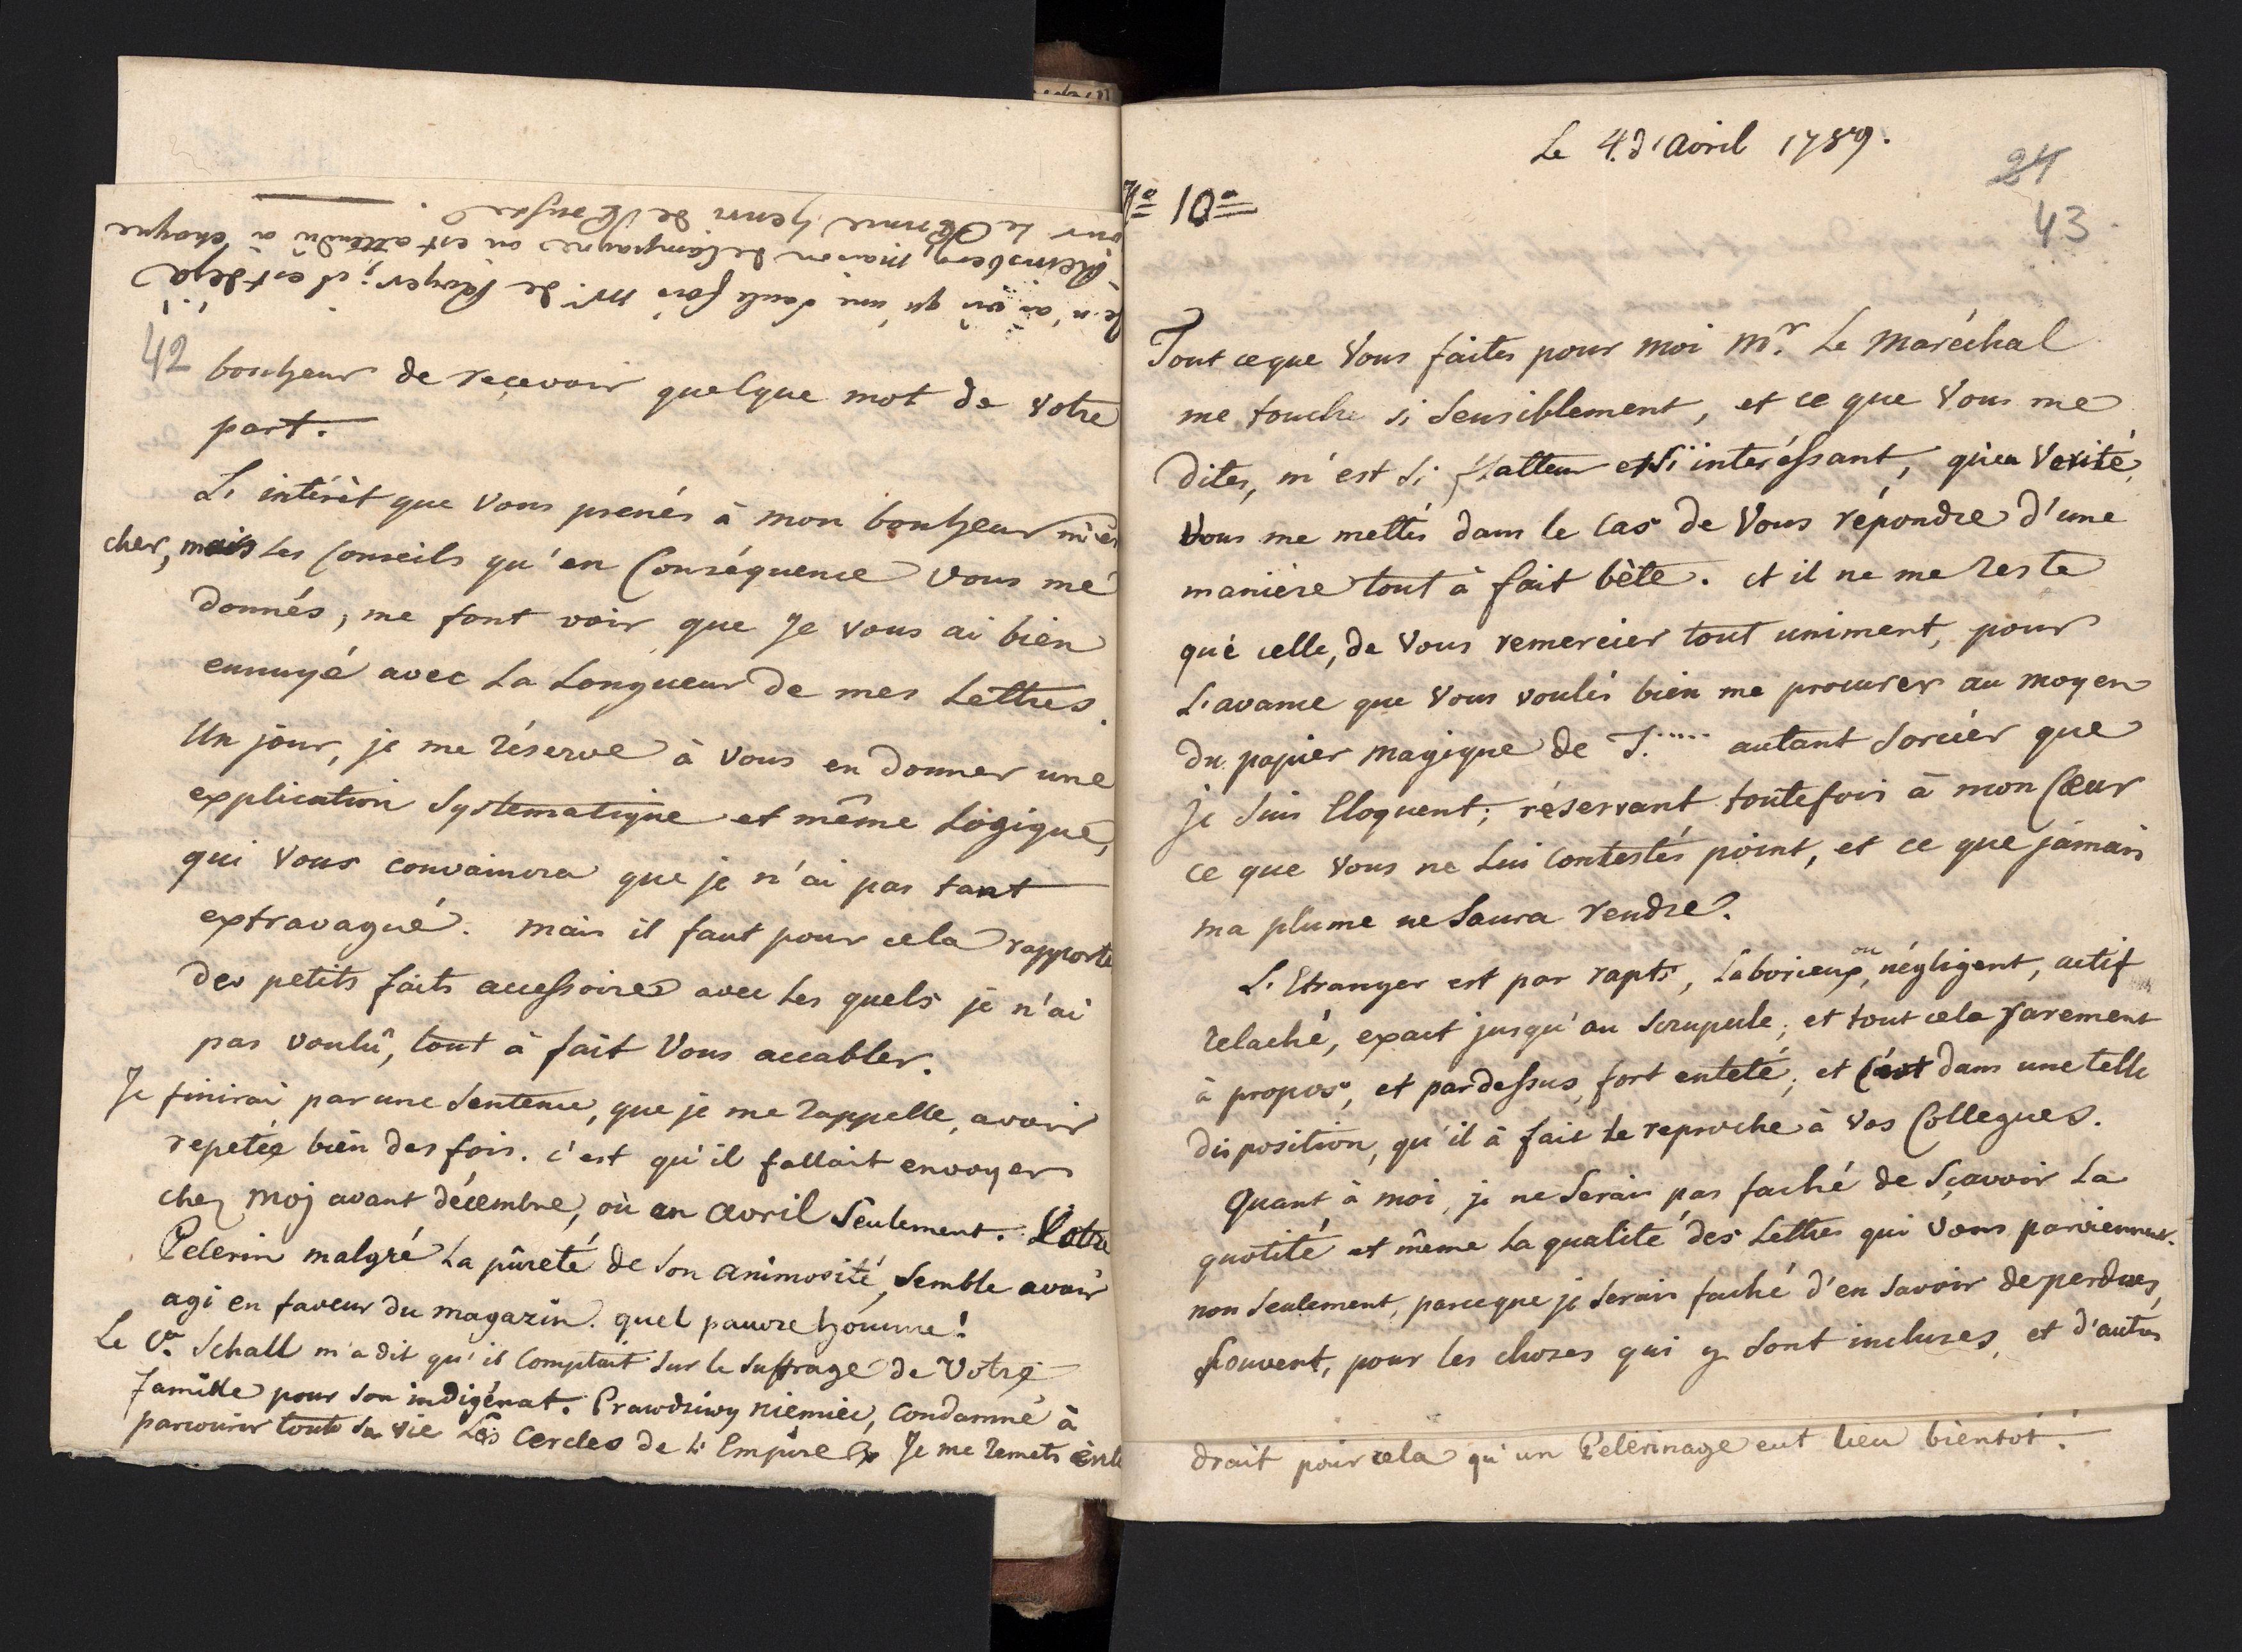 je n'ai vû qu'une seule fois Mr. de Keyser; il est deja
Reinsberg, maison de Campagne où est attendu à chaque
jour le Prince henri de Prusse.
42
bonheur de reçevoir quelque mot de votre
part.
L'intérèt que vous prenés à mon bonheur m'est
cher, mais les Conseils qu'en Conséquence vous me
donnés, me font voir que Je vous ai bien
ennuyé avec la Longueur de mes Lettres.
Un jour, je me réserve à vous en donner une
explication Systematique et même Logique,
qui vous convaincra que je n'ai pas tant
extravagué. mais il faut pour cela rapporte
des petits faits accessoires avec les quels je n'ai
pas voulû, tout à fait vous accabler.
Je finirai par une Sentence, que je me rappelle, avoir
repetée bien des fois. c'est qu'il fallait envoyer
chez moj avant décembre, où en avril Seulement. Votre
Pelerin malgré la pûreté de son animosité, semble avoir
agi en faveur du magazin. quel pauvre homme!
Le Cte Schall m'a dit qu'il Comptait Sur le Suffrage de Votre
famille pour Son indigénat. Prawdziwy niemiec, Condamné à
parcourir toute sa vie Les Cercles de L'Empire Je me remets
Le 4. d'Avril 1789.
24
43
No 10o
Tout ceque Vous faites pour moi Mr. Le Maréchal
me touche si Sensiblement, et ce que Vous me
dites, m'est Si flatteur et Si intéréssant, qu'en Verité,
vous me mettés dans le Cas de Vous répondre d'une
manière tout à fait bête. et il ne me reste
que celle, de Vous remercier tout uniment, pour
L'avance que Vous voulés bien me procurer au moyen
du papier magique de T..... autant Sorcier que
je Suis Eloquent; réservant toutefois à mon Cœur
ce que Vous ne Lui Contestés point, et ce que jamais
ma plume ne Saura rendre.
L'Etranger est par rapts, Laborieux, ou négligent, actif
relaché, exact jusqu'au Scrupule; et tout cela rarement
à propos, et pardessus, fort enteté; et C'est dans une telle
disposition, qu'il à fait le reproche à Vos Collegues.
Quant à moi, je ne Serais pas faché de Sçavoir La
quotité et même La qualité des Lettres qui Vous parviennent.
non Seulement, parceque je Serais faché d'en Savoir de perdues,
Souvent, pour les choses qui y Sont incluses, et d'autres
drait pour cela qu'un Pelerinage eut lieu bientôt.